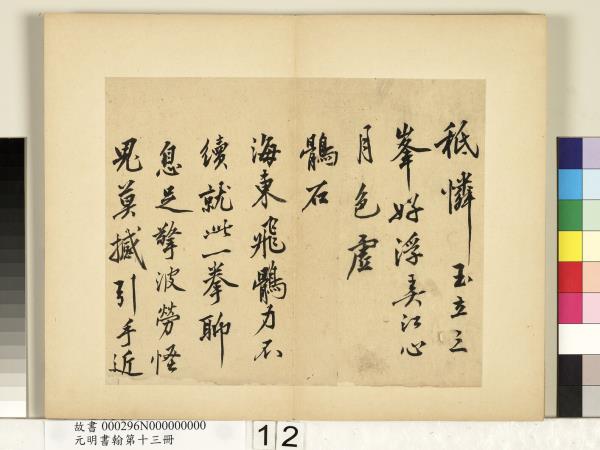 秪憐玉立三
峯好浮江心
月色虛
鶻石
海東飛鶻力不
續就此一拳聊
息足擎波勞怪
鬼莫撼引手近
故書 000296N000000000
元明書翰第十三冊
12